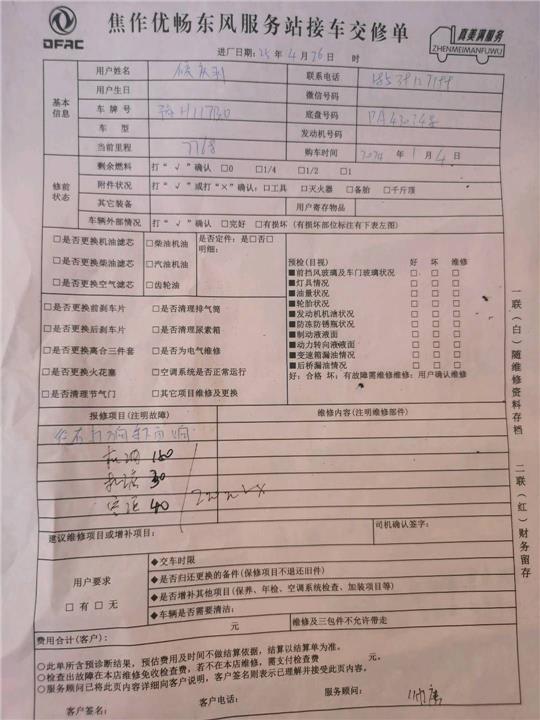 DFAC
焦作优畅东风服务站接车交修单
真美满服务
ZHENMEIMANFUWU
进厂日期：25年4月26日 时
基本信息
用户姓名 联系电话
用户生日 微信号码
车牌号 底盘号码
车 型 发动机号码
当前里程 7768 购车时间 2024年1月4日
修前状态
剩余燃料 打“√”确认 □0 □1/4 □1/2 □1
附件状况 打“√”或打“×”确认：□工具 □灭火器 □备胎 □千斤顶
其它装备 用户寄存物品
车辆外部情况 打“√”确认 □完好 □有损坏（有损坏部位标注有下表左图）
□是否更换机油滤芯 □柴油机油 是否定件：是□否□
明细：
□是否更换柴油滤芯 □汽油机油
□是否更换空气滤芯 □齿轮油
预检(目视) 好 坏 维修
■前挡风玻璃及车门玻璃状况 □ □ □
■灯具情况 □ □ □
■油量状况 □ □ □
■轮胎状况 □ □ □
■发动机机油状况 □ □ □
■防冻防锈瓶状况 □ □ □
■制动液液面 □ □ □
■动力转向液液面 □ □ □
■变速箱漏油情况 □ □ □
■后桥漏油情况 □ □ □
好：合格 坏：有故障需维修维修：用户确认维修
□是否更换前刹车片 □是否清理排气筒
□是否更换后刹车片 □是否清理尿素箱
□是否更换离合三件套 □是否为电气维修
□是否更换火花塞 □空调系统是否正常运行
□是否清理节气门 □其它项目维修及更换
报修项目(注明故障) 维修内容(注明维修部件)
机油 160
机滤 30
空滤 40
建议维修项目或增补项目： 司机确认签字：
用户要求
□有□无
◆交车时限
◆是否归还更换的备件(保修项目不退还旧件)
◆是否增补其他项目(保养、年检、空调系统检查、加装项目等)
◆车辆是否需要清洁：
元 维修及三包件不允许带走
费用合计(客户)：
○此单所含预诊断结果，预估费用及时间不做结算依据，结算以结算单为准。
○检查出故障在本店维修免收检查费，若不在本店维修，需支付检查费 元。
○服务顾问已将此页内容详细向客户说明，客户签名则表示已理解并接受此页内容。
客户签名： 客户电话： 服务顾问：
一联（白）随维修资料存档
二联（红）财务留存